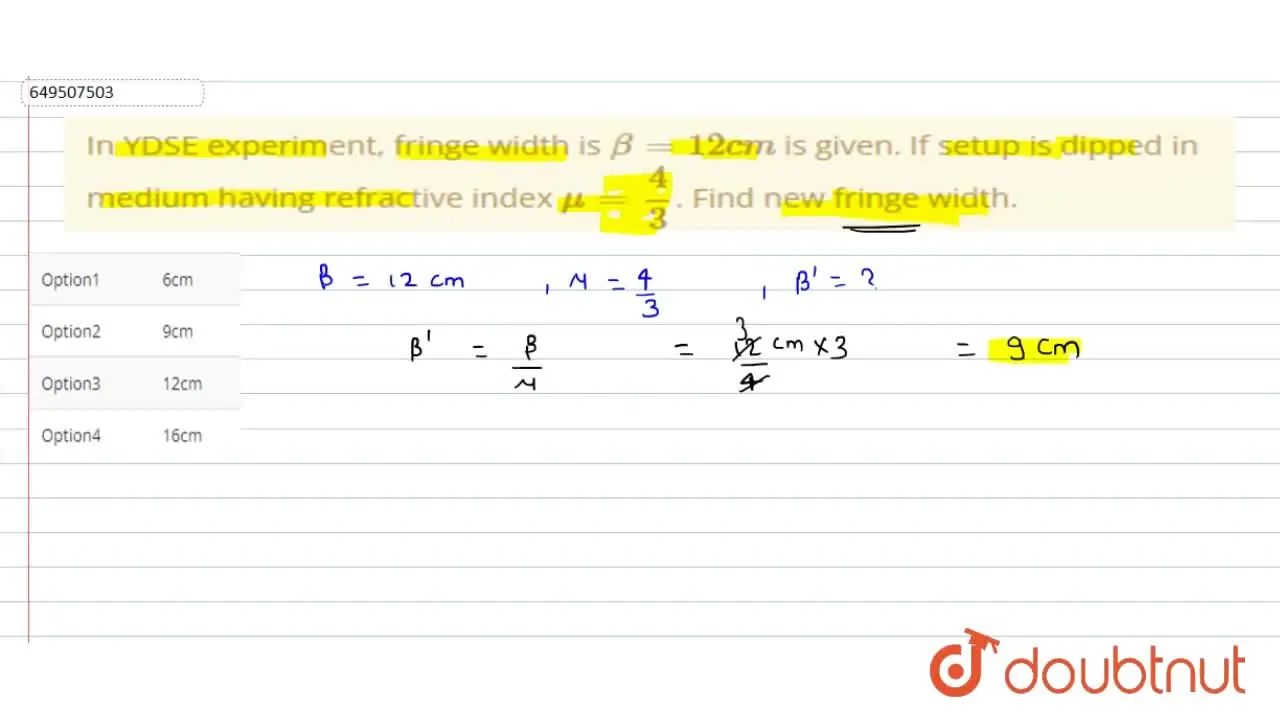 649507503
In YDSE experiment, fringe width is β = 12cm is given. If setup is dipped in
medium having refractive index μ = 4/3. Find new fringe width.
Option1 6cm
Option2 9cm
Option3 12cm
Option4 16cm
β = 12 cm , μ = 4/3 , β' = ?
β' = β/μ = 3 12/4 cm × 3 = 9 cm
doubtnut